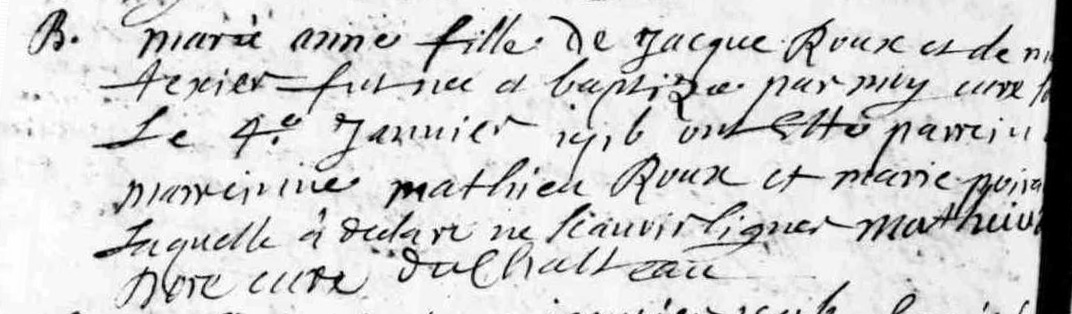 B. marie anne fille de Jacque Roux et de
texier fut nee et baptizee par moy cure
Le 4.e Januier 1716 ont Esté parrein
marreinne mathieu Roux et marie
Laquelle à declaré ne scauoir signer
cure duChasteau